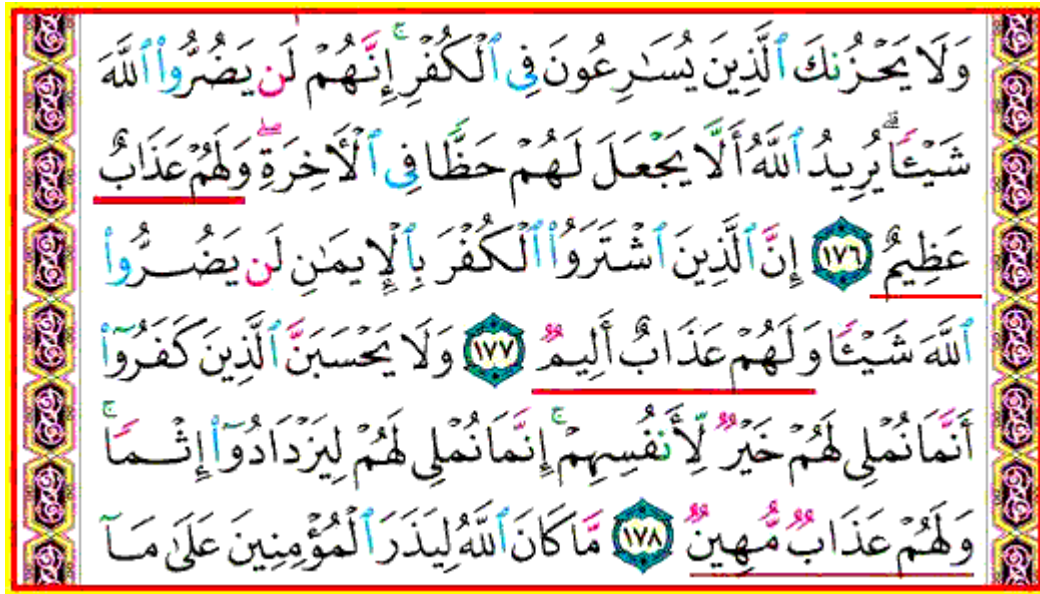 وَلَا يَحْزُنكَ ٱلَّذِينَ يُسَـٰرِعُونَ فِى ٱلْكُفْرِ ۚ إِنَّهُمْ لَن يَضُرُّوا۟ ٱللَّهَ
شَيْـًٔا ۗ يُرِيدُ ٱللَّهُ أَلَّا يَجْعَلَ لَهُمْ حَظًّا فِى ٱلْـَٔاخِرَةِ ۖ وَلَهُمْ عَذَابٌ
عَظِيمٌ ١٧٦ إِنَّ ٱلَّذِينَ ٱشْتَرَوُا۟ ٱلْكُفْرَ بِٱلْإِيمَـٰنِ لَن يَضُرُّوا۟
ٱللَّهَ شَيْـًٔا وَلَهُمْ عَذَابٌ أَلِيمٌ ١٧٧ وَلَا يَحْسَبَنَّ ٱلَّذِينَ كَفَرُوٓا۟
أَنَّمَا نُمْلِى لَهُمْ خَيْرٌ لِّأَنفُسِهِمْ ۚ إِنَّمَا نُمْلِى لَهُمْ لِيَزْدَادُوٓا۟ إِثْمًا ۚ
وَلَهُمْ عَذَابٌ مُّهِينٌ ١٧٨ مَّا كَانَ ٱللَّهُ لِيَذَرَ ٱلْمُؤْمِنِينَ عَلَىٰ مَآ